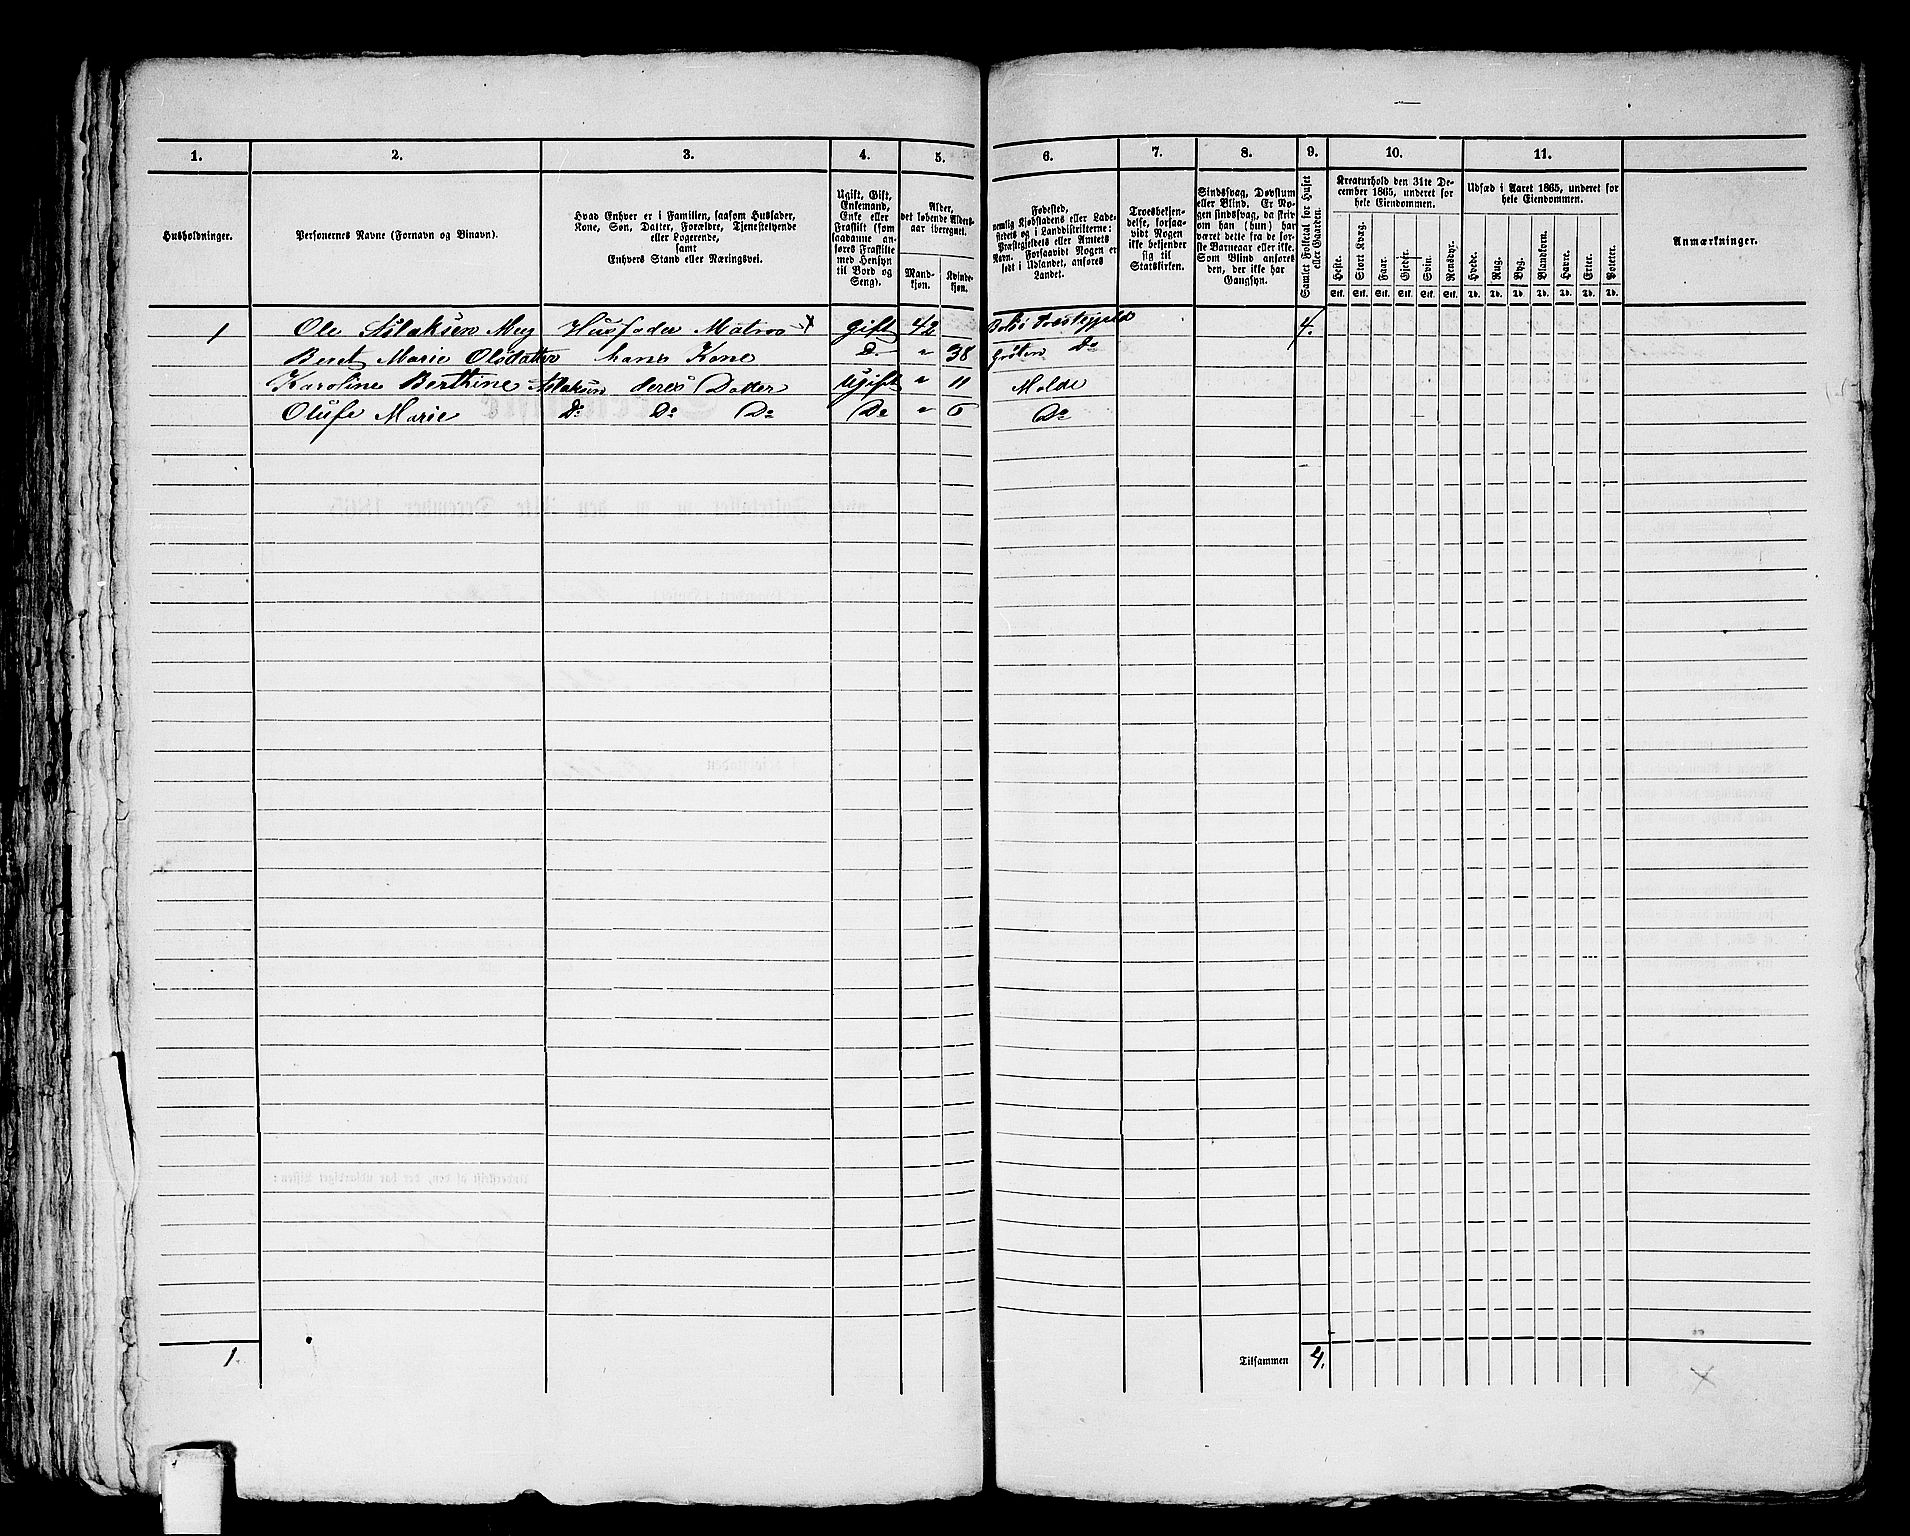 1. 2. 3. 4. 5. 6. 7. 8. 9. 10. 11.
Husholdninger.
Personernes Navne (Fornavn og Binavn).
Hvad Enhver er i Familien, saasom Husfader,
Kone, Søn, Datter, Forældre, Tjenestetyende
eller Logerende,
samt
Enhvers Stand eller Næringsvei.
Ugift, Gift,
Enkemand,
Enke eller
Fraskilt (som
saadanne an-
føres Fraskilte
med Hensyn
til Bord og
Seng).
Alder,
det løbende Alders-
aar iberegnet.
Mand-
kjøn.
Kvinde-
kjøn.
Fødested,
nemlig Kjøbstadens eller Lade-
stedets og i Landdistrikterne:
Præstegjeldets eller Amtets
Navn. Forsaavidt Nogen er
født i Udlandet, anføres
Landet.
Troesbekjen-
delse, forsaa-
vidt Nogen
ikke bekjender
sig til
Statskirken.
Sindssvag, Døvstum
eller Blind. Er No-
gen sindssvag, da skriv
om han (hun) har
været dette fra de før-
ste Barneaar eller ikke.
Som Blind anføres
den, der ikke har
Gangsyn.
Samlet Folketal for Huset
eller Gaarden.
Kreaturhold den 31te De-
cember 1865, underet for
hele Eiendommen.
Heste. Stort Kvæg. Faar. Gjeder. Svin. Rensdyr.
Stk. Stk. Stk. Stk. Stk. Stk.
Udsæd i Aaret 1865, underet for
hele Eiendommen.
Hvede. Rug. Byg. Blandkorn. Havre. Erter. Poteter.
Td. Td. Td. Td. Td. Td. Td.
Anmærkninger.
1 Ole Aslaksen Husfader Matros gift 42 Bolsø Præstegjeld 4.
Beret Marie Olsdatter hans Kone Do " 38 Do
Karoline Berthine Aslaksen deres Datter Ugift " 11 Molde
Olufe Marie Do Do Do Do " 6 Do
1. Tilsammen 4.